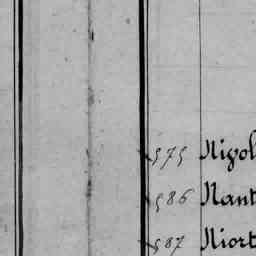 575 Nigol
586 Nant
587 Niort